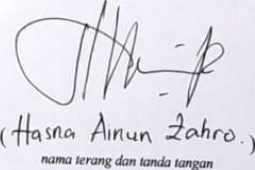 (Hasna Ainun Zahro.)
nama terang dan tanda tangan